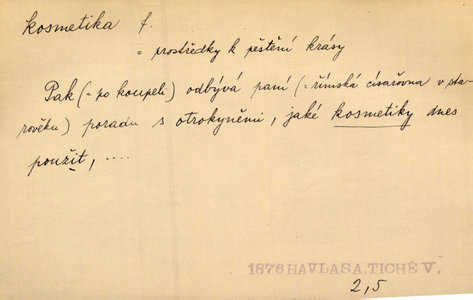 kosmetika f.
= prostředky k pěstění krásy
Pak (= po koupeli) odbývá paní (= římská císařovna v sta-
rověku) poradu s otrokyněmi, jaké kosmetiky dnes
použít, ....
1876 HAVLASA, TICHÉ V.
2,5